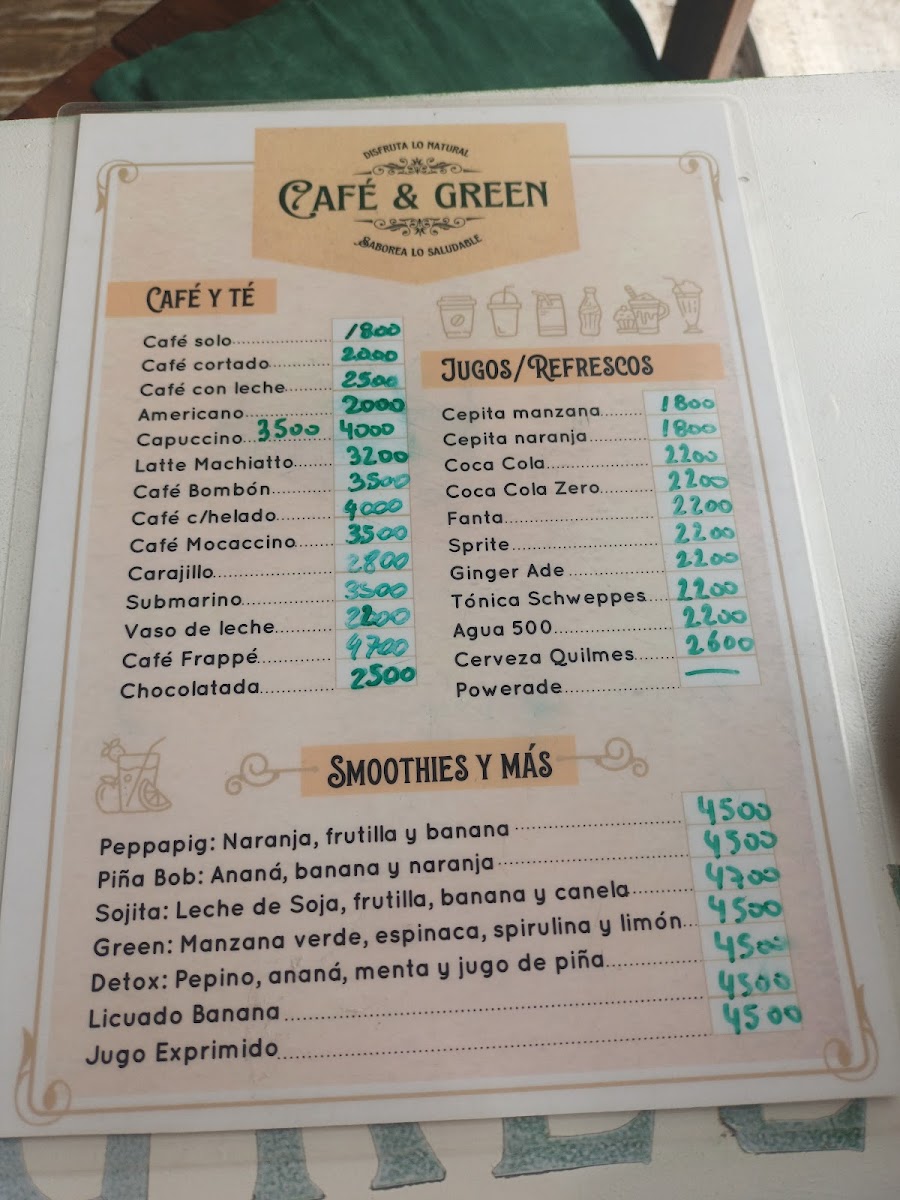 DISFRUTA LO NATURAL
CAFÉ & GREEN
SABOREA LO SALUDABLE
CAFÉ Y TÉ
Café solo 1800
Café cortado 2000
Café con leche 2500
Americano 2000
Capuccino 3500 4000
Latte Machiatto 3200
Café Bombón 3500
Café c/helado 4000
Café Mocaccino 3500
Carajillo 2800
Submarino 3500
Vaso de leche 2200
Café Frappé 4700
Chocolatada 2500
JUGOS/REFRESCOS
Cepita manzana 1800
Cepita naranja 1800
Coca Cola 2200
Coca Cola Zero 2200
Fanta 2200
Sprite 2200
Ginger Ade 2200
Tónica Schweppes 2200
Agua 500 2200
Cerveza Quilmes 2600
Powerade —
SMOOTHIES Y MÁS
Peppapig: Naranja, frutilla y banana 4500
Piña Bob: Ananá, banana y naranja 4500
Sojita: Leche de Soja, frutilla, banana y canela 4700
Green: Manzana verde, espinaca, spirulina y limón 4500
Detox: Pepino, ananá, menta y jugo de piña 4500
Licuado Banana 4500
Jugo Exprimido 4500